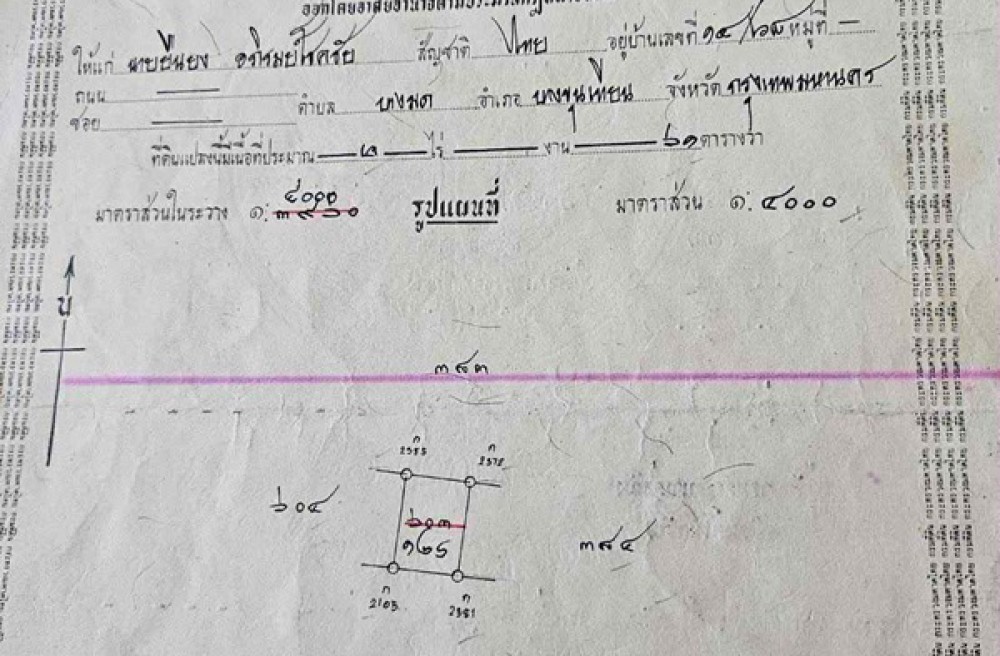 ออกโดยอาศัยอำนาจตามประมวลกฎหมาย
ให้แก่ นายยืนยง อภิรมย์ไชครัย สัญชาติ ไทย อยู่บ้านเลขที่ ๑๔/๖๘ หมู่ที่ —
ถนน — ตำบล บางมด อำเภอ บางขุนเทียน จังหวัด กรุงเทพมหานคร
ซอย —
ที่ดินแปลงนี้มีเนื้อที่ประมาณ — ๒ — ไร่ — งาน — ๖๑ ตารางวา
๔๐๐๐
มาตราส่วนในระวาง ๑: ๓๙๖๐ รูปแผนที่ มาตราส่วน ๑: ๔๐๐๐
ข
๓๘๓
ก ก
2353 2372
๖๐๔ ๖๐๓
๑๒๕ ๓๘๔
ก ก
2103 2381